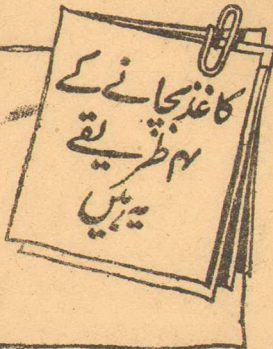 کاغذ بچانے کے
ہم طریقے
یہ ہیں